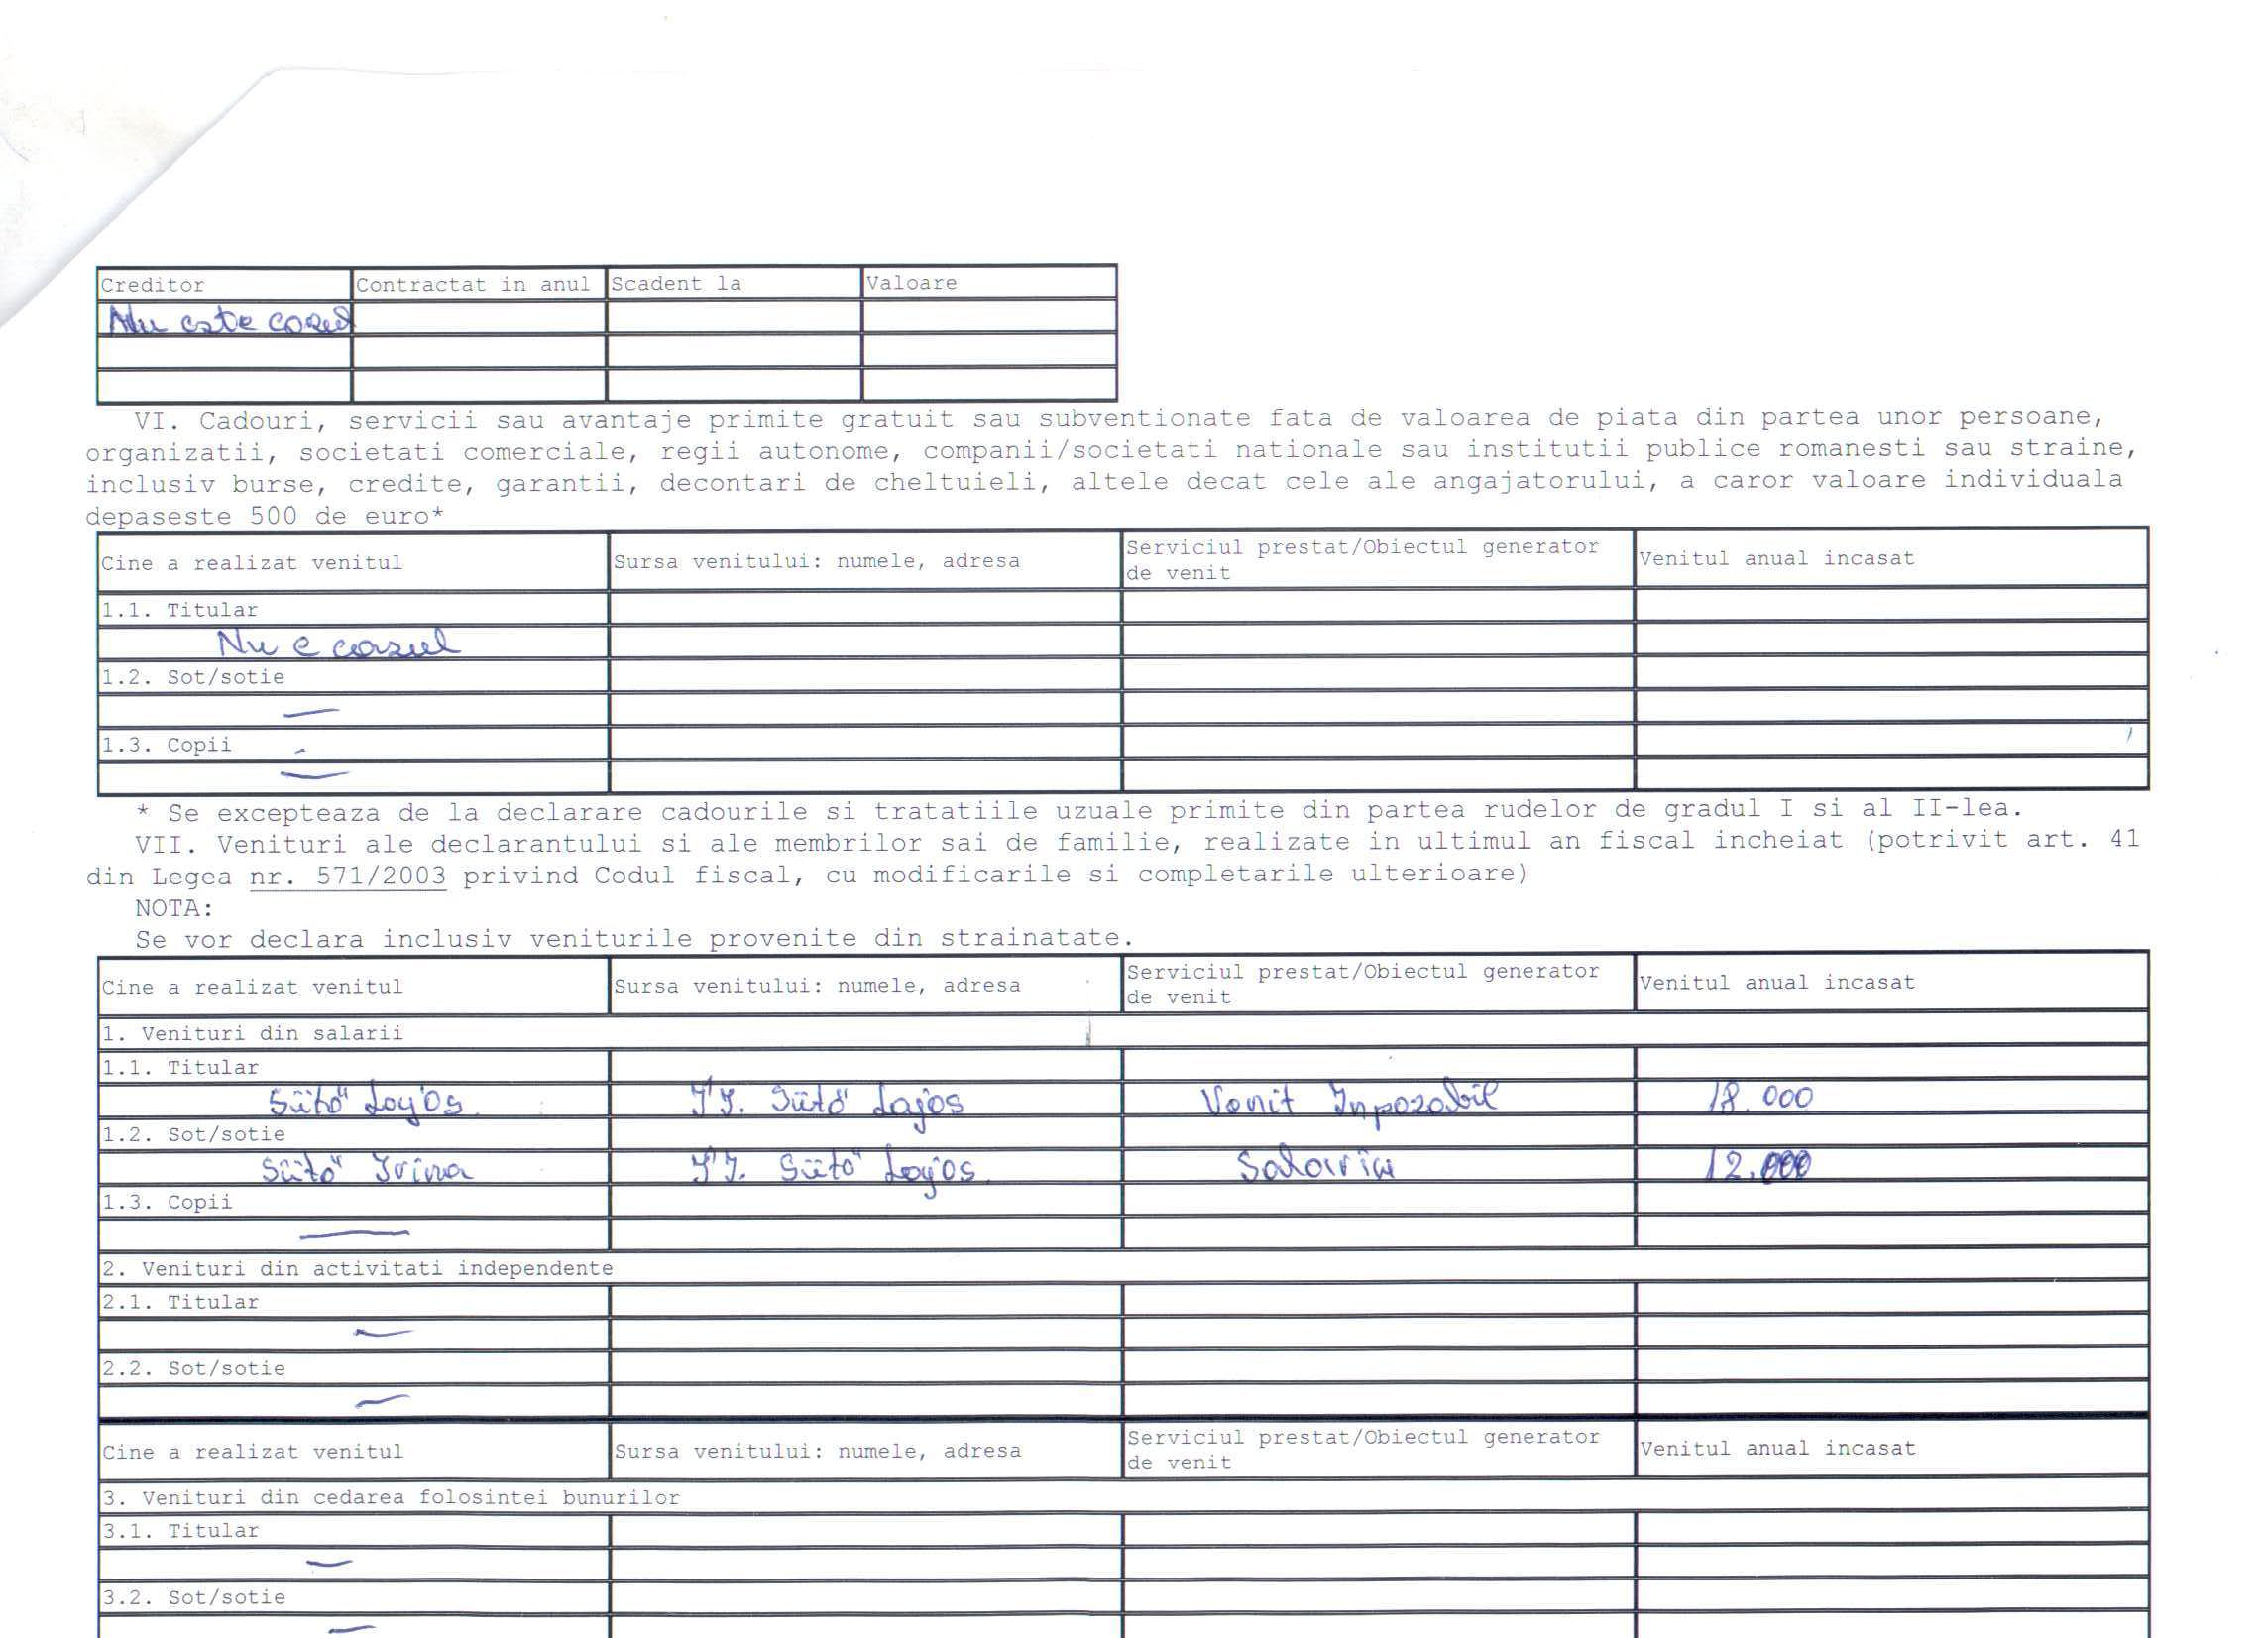 Creditor Contractat in anul Scadent la Valoare
Nu este cazul
VI. Cadouri, servicii sau avantaje primite gratuit sau subventionate fata de valoarea de piata din partea unor persoane,
organizatii, societati comerciale, regii autonome, companii/societati nationale sau institutii publice romanesti sau straine,
inclusiv burse, credite, garantii, decontari de cheltuieli, altele decat cele ale angajatorului, a caror valoare individuala
depaseste 500 de euro*
Cine a realizat venitul Sursa venitului: numele, adresa Serviciul prestat/Obiectul generator de venit Venitul anual incasat
1.1. Titular
Nu e cazul
1.2. Sot/sotie
—
1.3. Copii
—
* Se excepteaza de la declarare cadourile si tratatiile uzuale primite din partea rudelor de gradul I si al II-lea.
VII. Venituri ale declarantului si ale membrilor sai de familie, realizate in ultimul an fiscal incheiat (potrivit art. 41
din Legea nr. 571/2003 privind Codul fiscal, cu modificarile si completarile ulterioare)
NOTA:
Se vor declara inclusiv veniturile provenite din strainatate.
Cine a realizat venitul Sursa venitului: numele, adresa Serviciul prestat/Obiectul generator de venit Venitul anual incasat
1. Venituri din salarii
1.1. Titular
Sütő Lajos Sütő Lajos Venit Inpozabil 18.000
1.2. Sot/sotie
Sütő Irina Sütő Lajos Salariu 12.000
1.3. Copii
—
2. Venituri din activitati independente
2.1. Titular
—
2.2. Sot/sotie
—
Cine a realizat venitul Sursa venitului: numele, adresa Serviciul prestat/Obiectul generator de venit Venitul anual incasat
3. Venituri din cedarea folosintei bunurilor
3.1. Titular
—
3.2. Sot/sotie
—